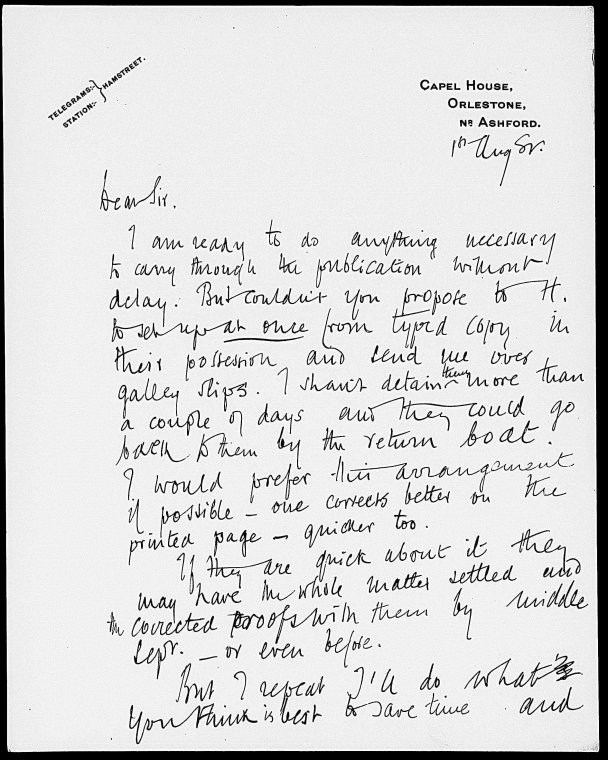 TELEGRAMS:-
STATION:-
} HAMSTREET.
CAPEL HOUSE,
ORLESTONE,
NR ASHFORD.
1st Aug
Dear Sir.
I am ready to do anything necessary
to carry through the publication without
delay. But couldn't you propose to H.
to set up at once from typed copy in
their possession and send me over
galley slips. I shan't detain them more than
a couple of days and they could go
back to them by the return boat.
I would prefer this arrangement
if possible – one corrects better on the
printed page – quicker too.
If they are quick about it they
may have the whole matter settled and
the corrected proofs with them by middle
Sept. – or even before.
But I repeat I'll do what
you think is best to save time and